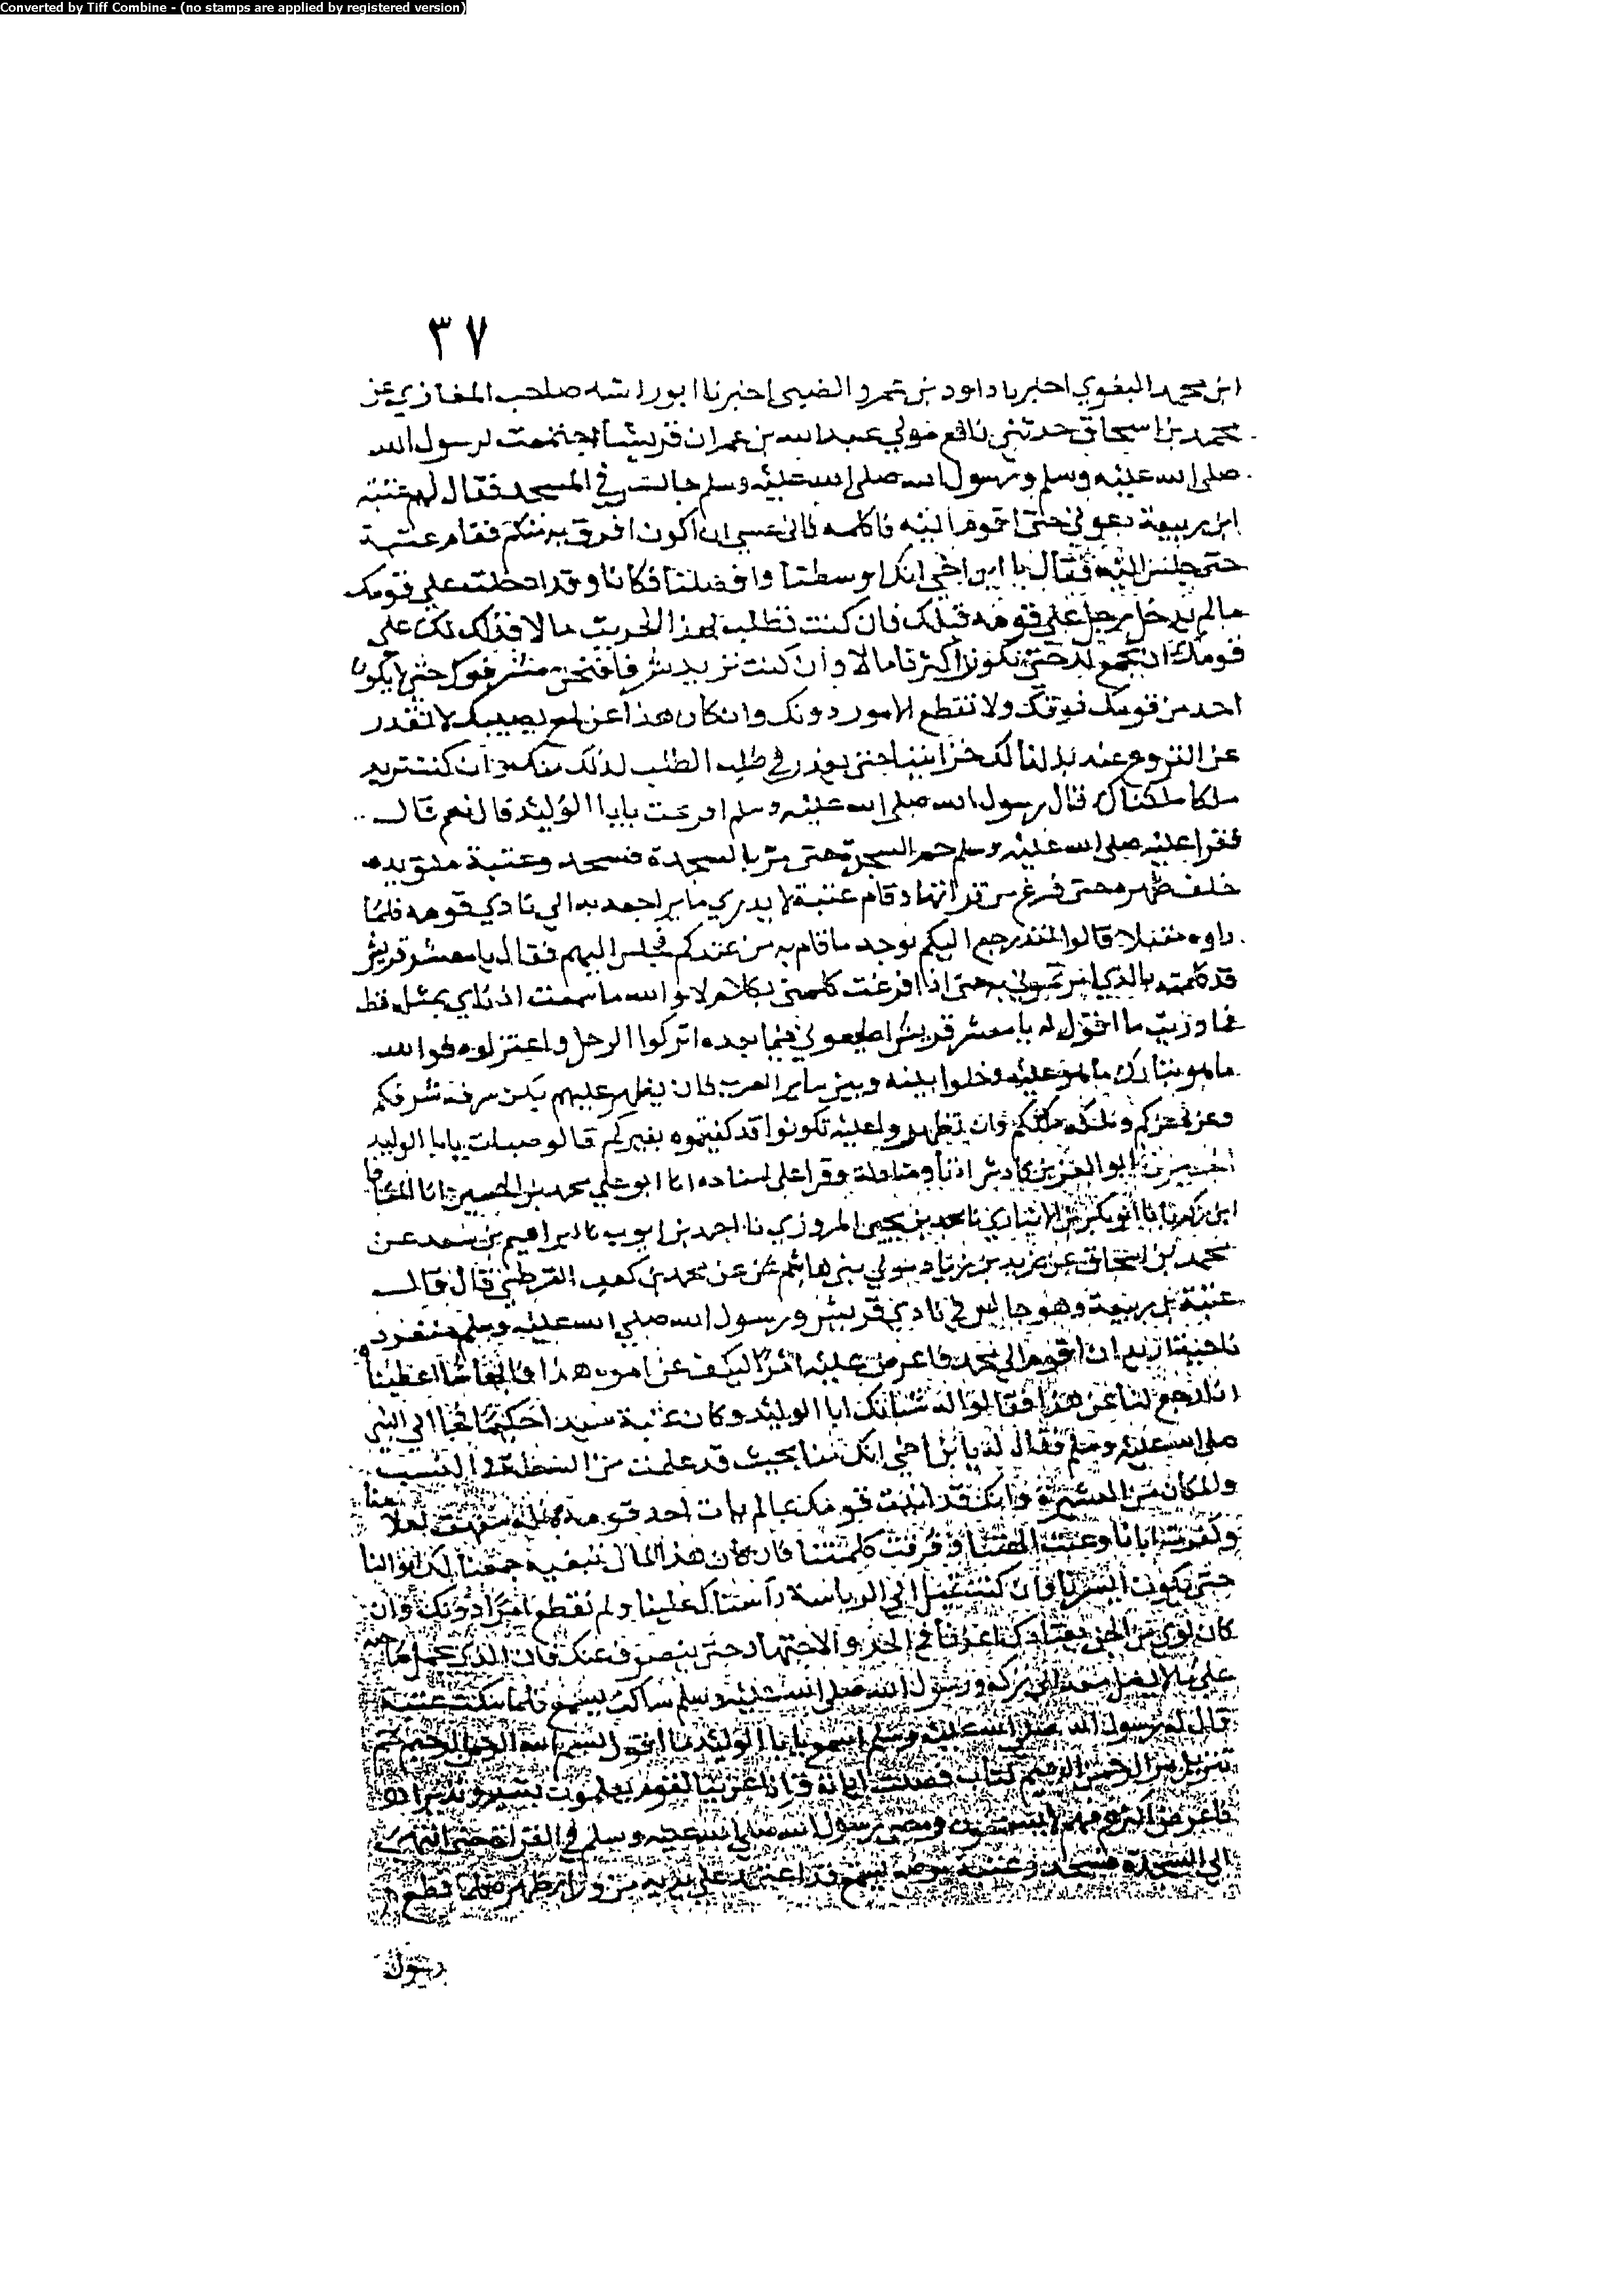 Converted by Tiff Combine - (no stamps are applied by registered version)
٣٧
ابن محمد البغوي اخبرنا داوود بن عمرو الضبي اخبرنا ابو راشد صاحب المغازي عن
محمد بن اسحاق حدثني نافع مولي عبد الله بن عمر ان قريشا اجتمعت لرسول الله
صلى الله عليه وسلم ورسول الله صلى الله عليه وسلم جالس في المسجد فقال لهم عتبة
ابن ربيعة دعوني حتى اقوم اليه فاكلمه فاني عسى ان اكون ارفق به منكم فقام عتبة
حتى جلس اليه فقال يا ابن اخي انك اوسطنا وافضلنا مكانا وقد ادخلت على قومك
مالم يدخل رجل على قومه قبلك فان كنت تطلب بهذا الحديث مالا فذلك لك على
قومك ان تجمع لك حتى تكون اكثرنا مالا وان كنت تريد شرفا فنحن مشرفوك حتى لا يكون
احد من قومك فوقك ولا نقطع الامور دونك وان كان هذا عن لمم يصيبك لا تقدر
عن النزوع عنه بذلنا لك خزايننا حتى نعذر في طلب الطب لذلك منك وان كنت تريد
ملكا ملكناك فقال رسول الله صلى الله عليه وسلم افرغت يابا الوليد قال نعم قال
فقرا عليه صلى الله عليه وسلم حم السجدة حتى مر بالسجدة فسجد وعتبة ملق يده
خلف ظهره حتى فرغ من قراتها وقام عتبة لا يدري ما يراجعه به الي نادي قومه فلما
راوه مقبلا قالوا لقد رجع اليكم بوجه ما قام به من عندكم فجلس اليهم فقال يا معشر قريش
قد كلمته بالذي امرتموني به حتى اذا فرغت كلمني بكلام لا والله ما سمعت اذناي بمثله قط
فما دريت ما اقول له يا معشر قريش اطيعوني فيما بعده اتركوا الرجل واعتزلوه فوالله
ما هو بتارك ما هو عليه وخلوا بينه وبين ساير العرب فان يظهر عليهم يكن شرفه شرفكم
وعزه عزكم وملكه ملككم وان تظهروا عليه تكونوا قد كفيتموه بغيركم قالو صبات يابا الوليد
ابو العز بن كادش اذنا ومناولة وقرا على اسناده انا ابو علي محمد بن الحسين انا المعافا
ابن زكريا نا ابو بكر بن الانباري نا محمد بن يحيى المروزي نا احمد بن ايوب نا ابراهيم بن سعد عن
محمد بن اسحاق عن يزيد بن زياد مولي بني هاشم عن محمد بن كعب القرظي قال قال
عتبة بن ربيعة وهو جالس في نادي قريش ورسول الله صلي الله عليه وسلم منفرد
ان اقوم الي محمد فاعرض عليه امرا ليكف عن امره هذا
فقالوا له شانك ابا الوليد وكان عتبة سيدا حكيما الي النبي
صلى الله عليه وسلم فقال له يا بن اخي انك منا بحيث قد علمت من السطة في النسب
والمكان من العشيرة وانك قد اتيت قومك بما لم يات احد قومه
وكفرت ابانا وعبت الهتنا وفرقت كلمتنا فان كان هذا المال تبغيه جمعنا لك اموالنا
حتى تكون ايسرنا وان كنت تميل الي الرياسة راسناك علينا ولم نقطع امرا دونك وان
ورسول الله صلى الله عليه وسلم ساكت يسمع فلما سكت عتبة
قال له رسول الله صلى الله عليه وسلم اسمع يابا الوليد ما اقول بسم الله الرحمن الرحيم حم
تنزيل من الرحمن الرحيم كتاب فصلت اياته قرانا عربيا لقوم يعلمون بشيرا ونذيرا
فاعرض اكثرهم فهم لا يسمعون ومضى رسول الله صلى الله عليه وسلم في القراة حتى انتهى
الي السجدة فسجد وعتبة يسمع قد اعتمد على يديه من ورا ظهره فلما قطع
رسول